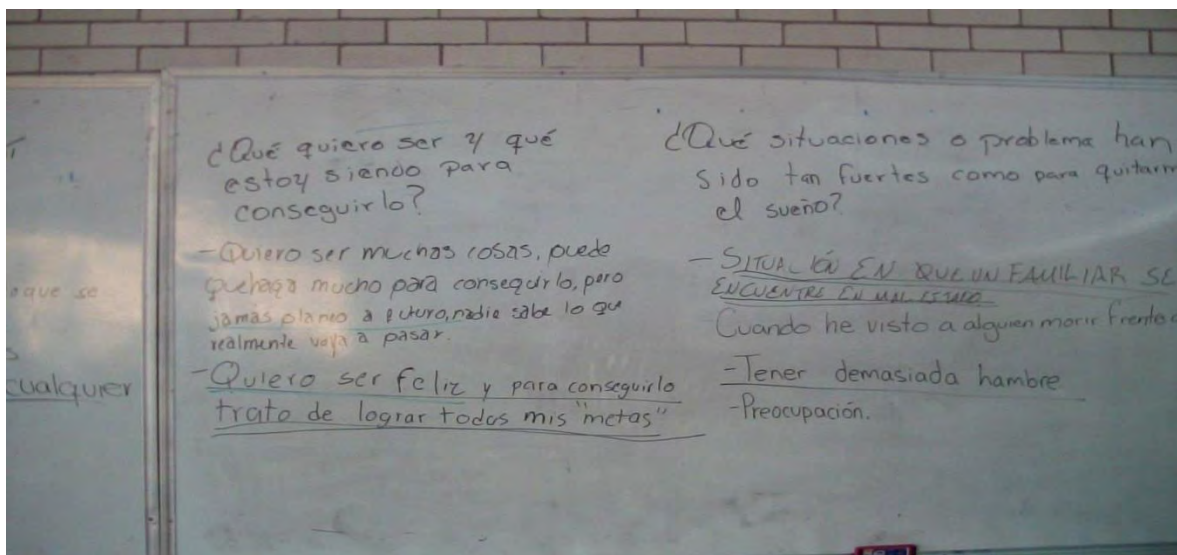 oque se
cualquier
¿Qué quiero ser y qué
estoy siendo para
conseguirlo?
- Quiero ser muchas cosas, puede
que haga mucho para conseguirlo, pero
jamás planeo a futuro, nadie sabe lo que
realmente vaya a pasar.
- Quiero ser feliz y para conseguirlo
trato de lograr todas mis "metas"
¿Qué situaciones o problema han
sido tan fuertes como para quitarm
el sueño?
- SITUACIÓN EN QUE UN FAMILIAR SE
ENCUENTRE EN MAL ESTADO
Cuando he visto a alguien morir frente a
- Tener demasiada hambre
- Preocupación.